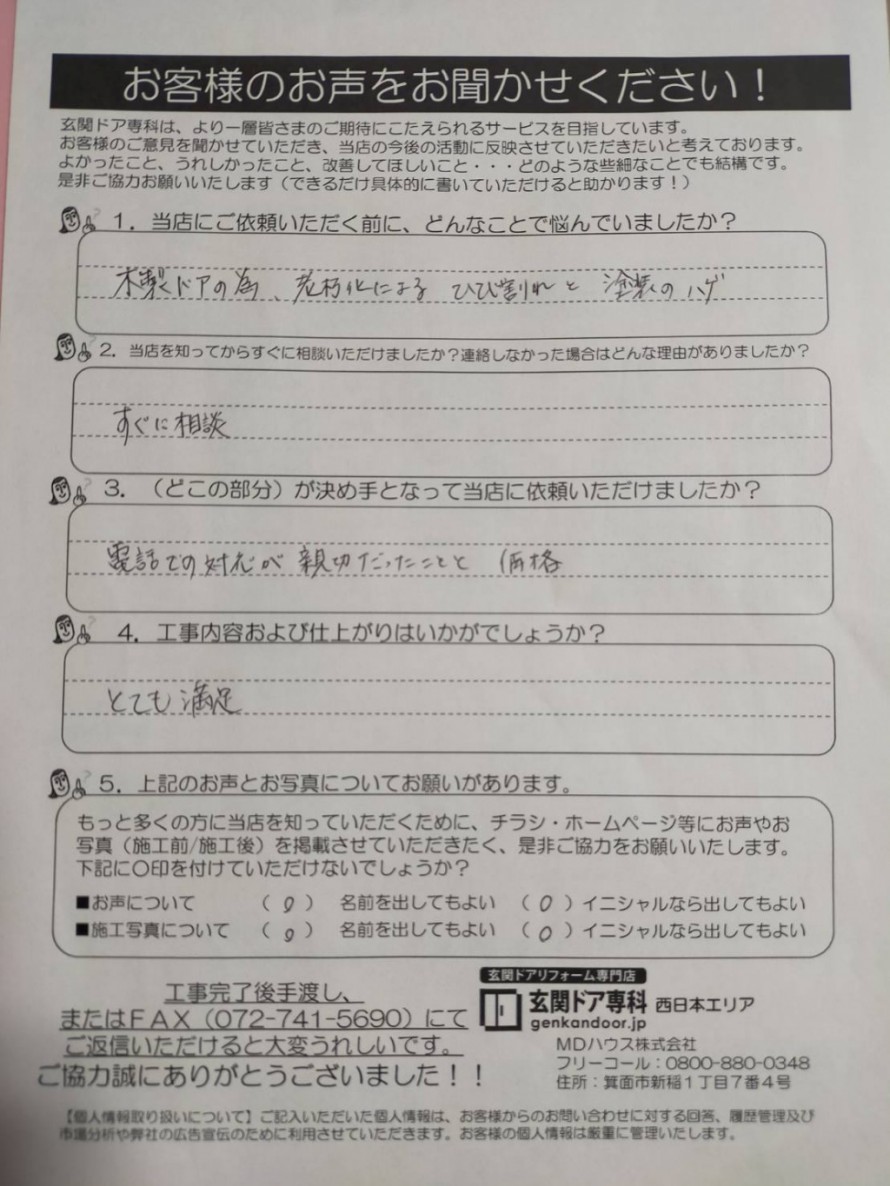 お客様のお声をお聞かせください！
玄関ドア専科は、より一層皆さまのご期待にこたえられるサービスを目指しています。
お客様のご意見を聞かせていただき、当店の今後の活動に反映させていただきたいと考えております。
よかったこと、うれしかったこと、改善してほしいこと・・・どのような些細なことでも結構です。
是非ご協力お願いいたします（できるだけ具体的に書いていただけると助かります！）
1．当店にご依頼いただく前に、どんなことで悩んでいましたか？
木製ドアの為、老朽化による ひび割れと 塗装のハゲ
2．当店を知ってからすぐに相談いただけましたか？連絡しなかった場合はどんな理由がありましたか？
すぐに相談
3．（どこの部分）が決め手となって当店に依頼いただけましたか？
電話での対応が 親切だったことと 価格
4．工事内容および仕上がりはいかがでしょうか？
とても満足
5．上記のお声とお写真についてお願いがあります。
もっと多くの方に当店を知っていただくために、チラシ・ホームページ等にお声やお
写真（施工前/施工後）を掲載させていただきたく、是非ご協力をお願いいたします。
下記に〇印を付けていただけないでしょうか？
■お声について （ 0 ） 名前を出してもよい （ 0 ）イニシャルなら出してもよい
■施工写真について （ 0 ） 名前を出してもよい （ 0 ）イニシャルなら出してもよい
工事完了後手渡し、
またはＦＡＸ（072-741-5690）にて
ご返信いただけると大変うれしいです。
ご協力誠にありがとうございました！！
玄関ドアリフォーム専門店
玄関ドア専科 西日本エリア
genkandoor.jp
MDハウス株式会社
フリーコール：0800-880-0348
住所：箕面市新稲1丁目7番4号
【個人情報取り扱いについて】ご記入いただいた個人情報は、お客様からのお問い合わせに対する回答、履歴管理及び
市場分析や弊社の広告宣伝のために利用させていただきます。お客様の個人情報は厳重に管理いたします。